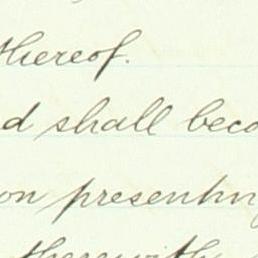 thereof.
d shall beco
on presentin
therewith